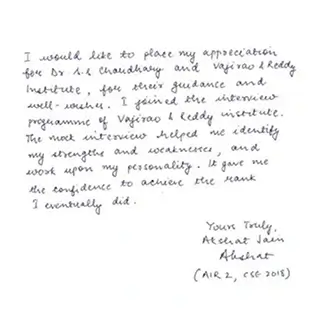 I would like to place my appreciation
for Dr S.S Chaudhary and Vajirao & Reddy
Institute, for their guidance and
well-wishes. I joined the interview
programme of Vajirao & Reddy institute.
The mock interview helped me identify
my strengths and weaknesses, and
work upon my personality. It gave me
the confidence to achieve the rank
I eventually did.
Yours Truly,
Akshat Jain
Akshat
(AIR 2, CSE 2018)